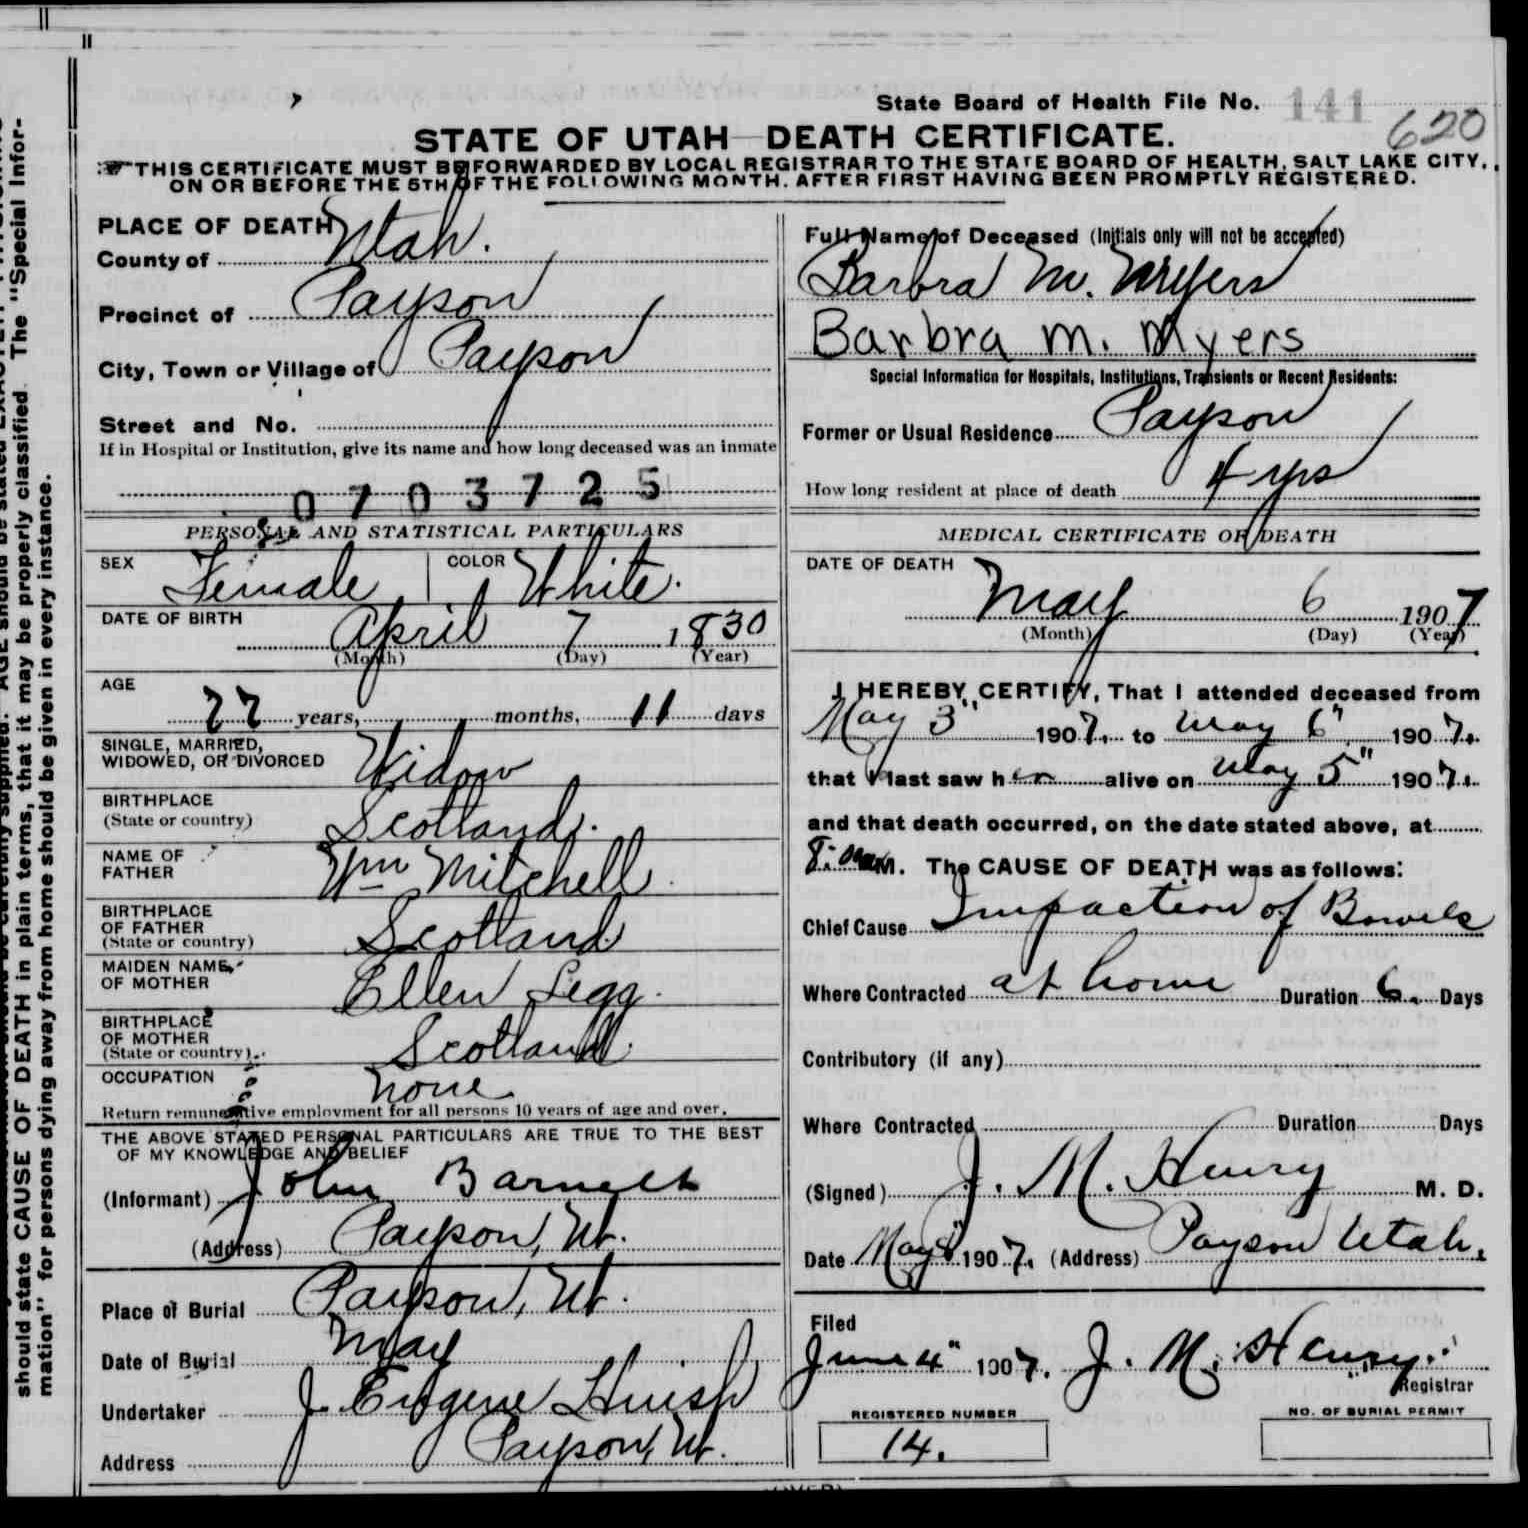 State Board of Health File No. 141
620
STATE OF UTAH—DEATH CERTIFICATE.
THIS CERTIFICATE MUST BE FORWARDED BY LOCAL REGISTRAR TO THE STATE BOARD OF HEALTH, SALT LAKE CITY,
ON OR BEFORE THE 5TH OF THE FOLLOWING MONTH, AFTER FIRST HAVING BEEN PROMPTLY REGISTERED.
PLACE OF DEATH
County of Utah.
Precinct of Payson
City, Town or Village of Payson
Street and No.
If in Hospital or Institution, give its name and how long deceased was an inmate
0703725
PERSONAL AND STATISTICAL PARTICULARS
SEX Female COLOR White.
DATE OF BIRTH
April 7 1830
(Month) (Day) (Year)
AGE
77 years, months, 11 days
SINGLE, MARRIED,
WIDOWED, OR DIVORCED Widow
BIRTHPLACE
(State or country) Scotland.
NAME OF
FATHER Wm Mitchell
BIRTHPLACE
OF FATHER
(State or country) Scotland
MAIDEN NAME
OF MOTHER Ellen Legg.
BIRTHPLACE
OF MOTHER
(State or country) Scotland.
OCCUPATION none
Return remunerative employment for all persons 10 years of age and over.
THE ABOVE STATED PERSONAL PARTICULARS ARE TRUE TO THE BEST
OF MY KNOWLEDGE AND BELIEF
(Informant) John Barnett
(Address) Payson, Ut.
Place of Burial Payson, Ut.
Date of Burial May
Undertaker J. Eugene Huish
Address Payson, Ut.
Full Name of Deceased (Initials only will not be accepted)
Barbra M. Myers
Barbra M. Myers
Special Information for Hospitals, Institutions, Transients or Recent Residents:
Former or Usual Residence Payson
How long resident at place of death 4 yrs
MEDICAL CERTIFICATE OF DEATH
DATE OF DEATH
May 6 1907
(Month) (Day) (Year)
I HEREBY CERTIFY, That I attended deceased from
May 3" 1907. to May 6" 1907.
that I last saw her alive on May 5" 1907.
and that death occurred, on the date stated above, at
M. The CAUSE OF DEATH was as follows:
Chief Cause Impaction of Bowels
Where Contracted at home Duration 6. Days
Contributory (if any)
Where Contracted Duration Days
(Signed) J. M. Henry M. D.
Date May 1907. (Address) Payson Utah.
Filed
June 4" 1907. J. M. Henry.
Registrar
REGISTERED NUMBER
14.
NO. OF BURIAL PERMIT
should state CAUSE OF DEATH in plain terms, that it may be properly classified. The "Special Infor-
mation" for persons dying away from home should be given in every instance.